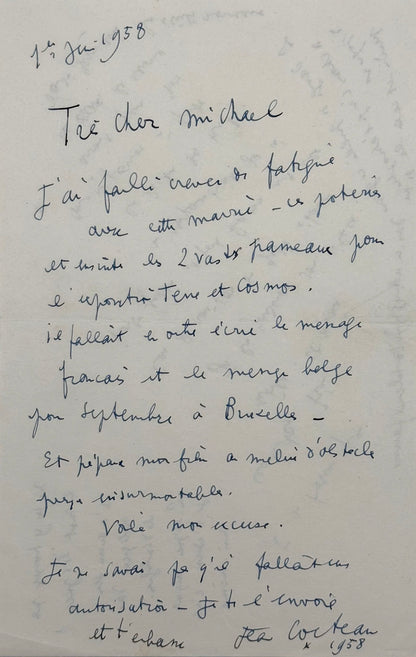 1er Juin 1958
Très cher Michael
J'ai failli crever de fatigue
avec cette mairie – ces poteries
et ensuite les 2 vastes panneaux pour
l'exposition Terre et Cosmos.
il fallait en outre écrire le message
français et le message belge
pour Septembre à Bruxelles –
Et préparer mon film au milieu d'obstacles
presque insurmontables.
Voilà mon excuse.
Je ne savais pas qu'il fallait une
autorisation – Je te l'envoie
et t'embrasse Jean Cocteau
1958